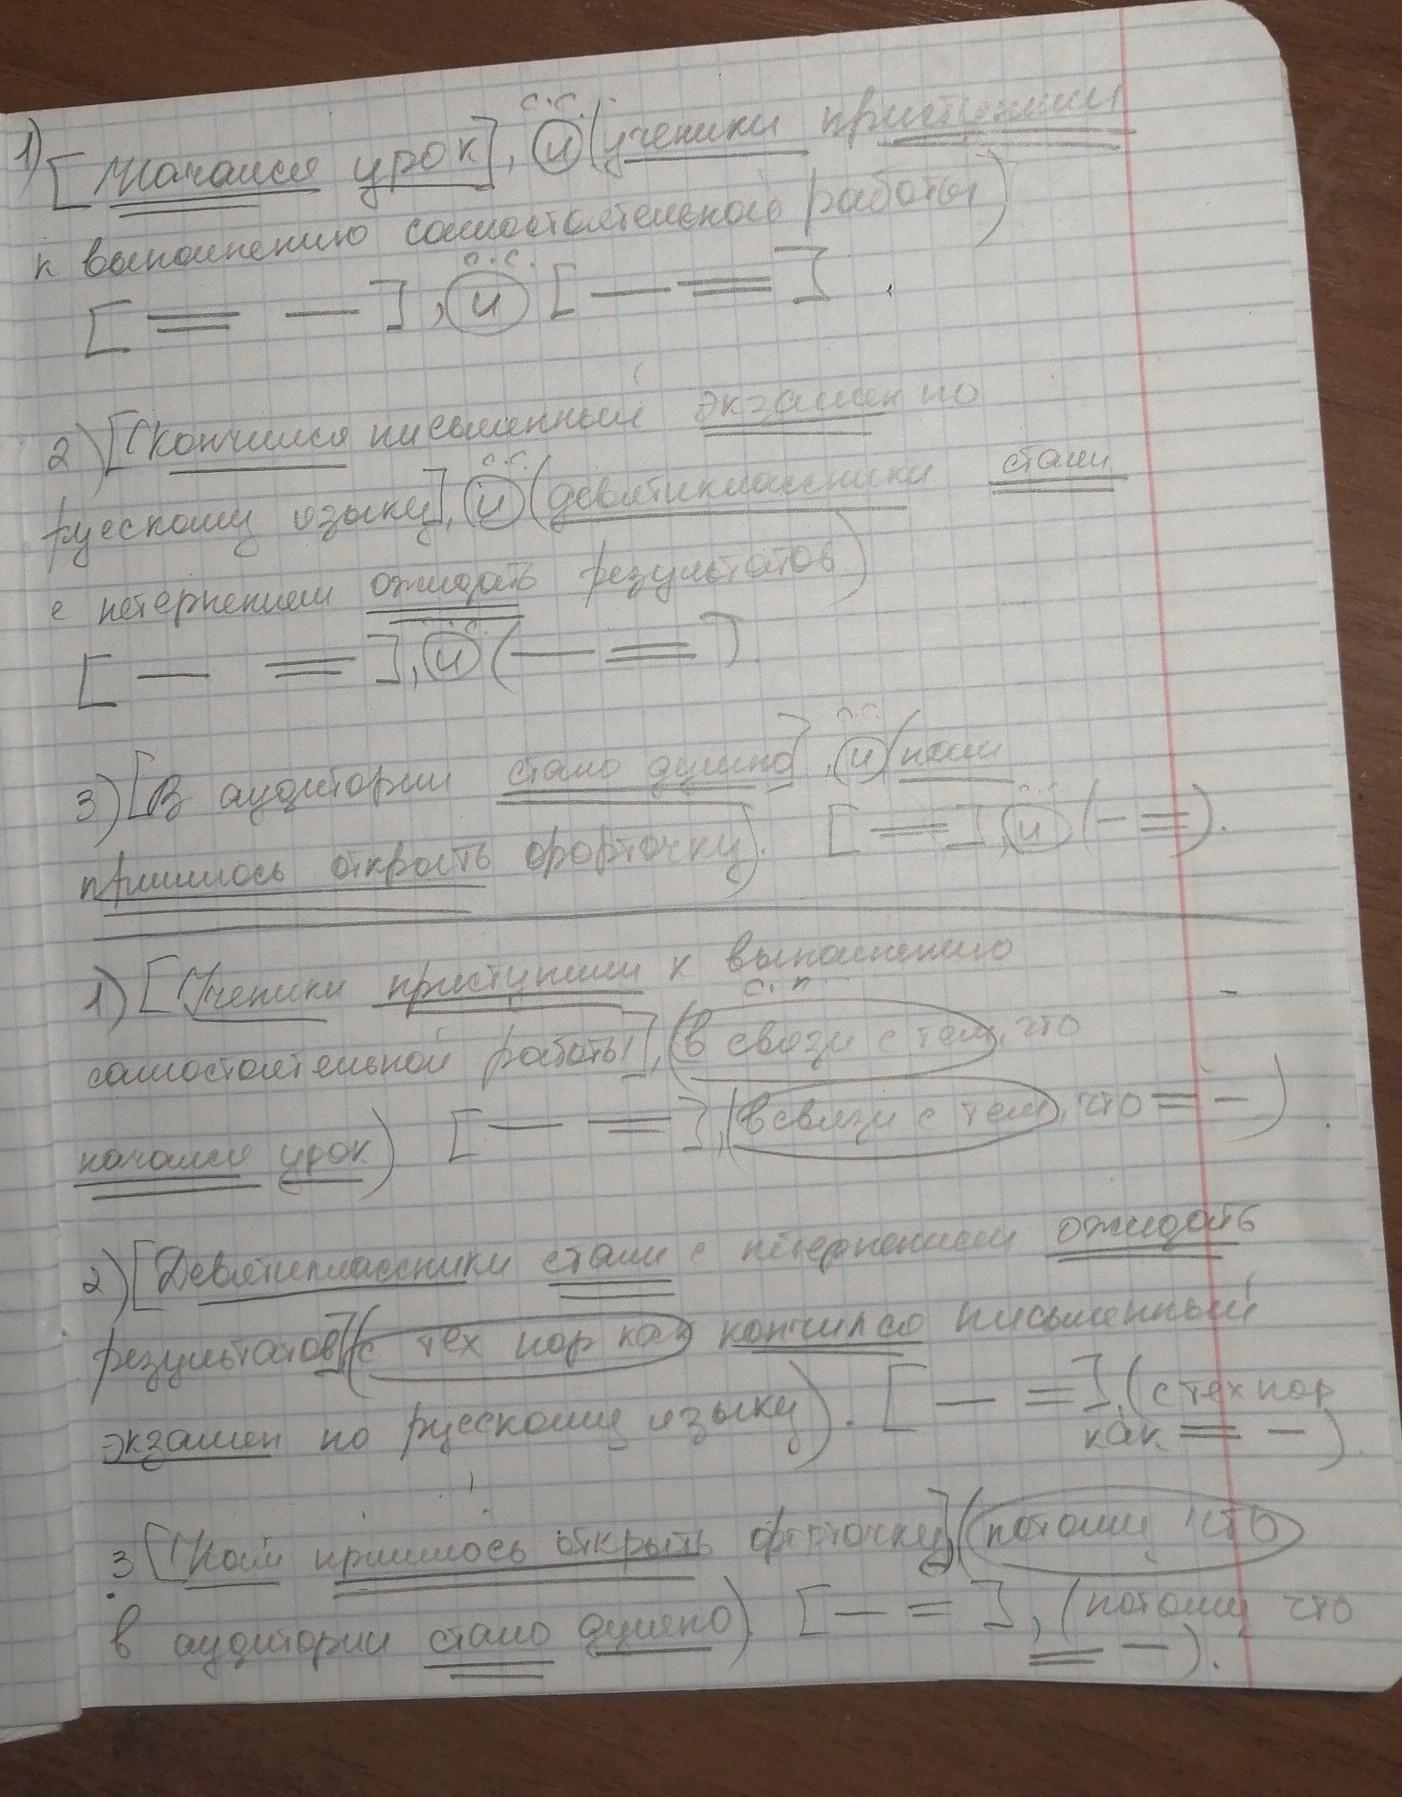 с.с.
1) [Начался урок], и (ученики приступили
к выполнению самостоятельной работы)
с.с.
[ = — ], и [ — = ]
2) [Кончился письменный экзамен по
с.с.
русскому языку], и (девятиклассники стали
с нетерпением ожидать результатов)
с.с.
[ — = ], и ( — = ).
с.с.
3) [В аудитории стало душно], и (нам
с.с.
пришлось открыть форточку). [ = ], и ( — = ).
1) [Ученики приступили к выполнению
с.п.
самостоятельной работы], (в связи с тем, что
начался урок) [ — = ], (в связи с тем, что = — ).
2) [Девятиклассники стали с нетерпением ожидать
результатов], (с тех пор как кончился письменный
экзамен по русскому языку). [ — = ], (с тех пор
как = — ).
3 [Нам пришлось открыть форточку], (потому что
в аудитории стало душно) [ — = ], (потому что
= — ).